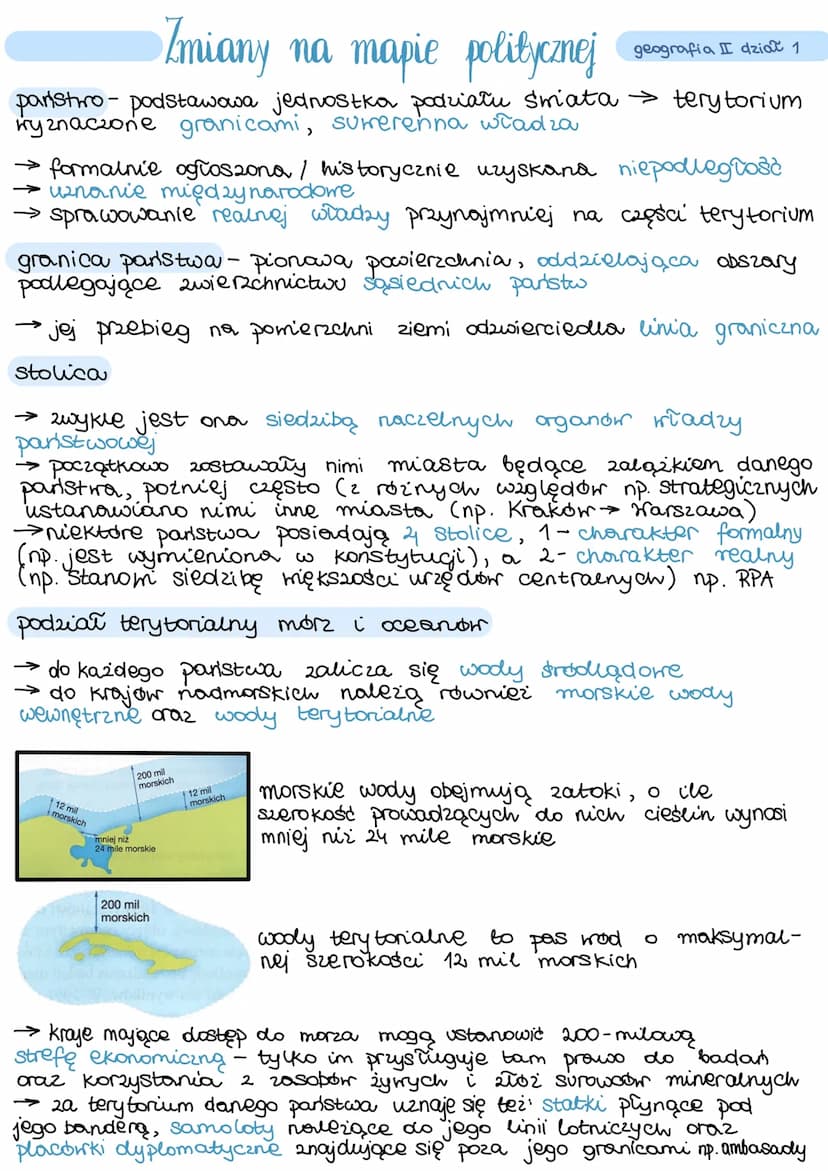 Zmiany na mapie politycznej
geografia II dział 1
państwo - podstawowa jednostka podziału świata → terytorium
wyznaczone granicami, suwerenna władza
→ formalnie ogłoszona / historycznie uzyskana niepodległość
→ uznanie międzynarodowe
→ sprawowanie realnej władzy przynajmniej na części terytorium
granica państwa - pionowa powierzchnia, oddzielająca obszary
podlegające zwierzchnictwu sąsiednich państw
→ jej przebieg na powierzchni ziemi odzwierciedla linia graniczna
stolica
→ zwykle jest ona siedzibą naczelnych organów władzy
państwowej
→ początkowo zostawały nimi miasta będące zalążkiem danego
państwa, poźniej często (z różnych względów np. strategicznych
ustanowiano nimi inne miasta (np. Kraków → Warszawa)
→ niektóre państwa posiadają 2 stolice, 1 - charakter formalny
(np. jest wymieniona w konstytucji), a 2 - charakter realny
(np. stanowi siedzibę większości urzędów centralnych) np. RPA
podział terytorialny mórz i oceanów
→ do każdego państwa zalicza się wody śródlądowe
→ do krajów nadmorskich należą również morskie wody
wewnętrzne oraz wody terytorialne
200 mil
morskich
12 mil
morskich
12 mil
morskich
mniej niż
24 mile morskie
morskie wody obejmują zatoki, o ile
szerokość prowadzących do nich cieślin wynosi
mniej niż 24 mile morskie
200 mil
morskich
wody terytorialne to pas wód o maksymal-
nej szerokości 12 mil morskich
→ kraje mające dostęp do morza mogą ustanowić 200-milową
strefę ekonomiczną - tylko im przysługuje tam prawo do badań
oraz korzystania z zasobów żywych i złóż surowców mineralnych
→ za terytorium danego państwa uznaje się też statki płynące pod
jego banderą, samoloty należące do jego linii lotniczych oraz
placówki dyplomatyczne znajdujące się poza jego granicami np. ambasady